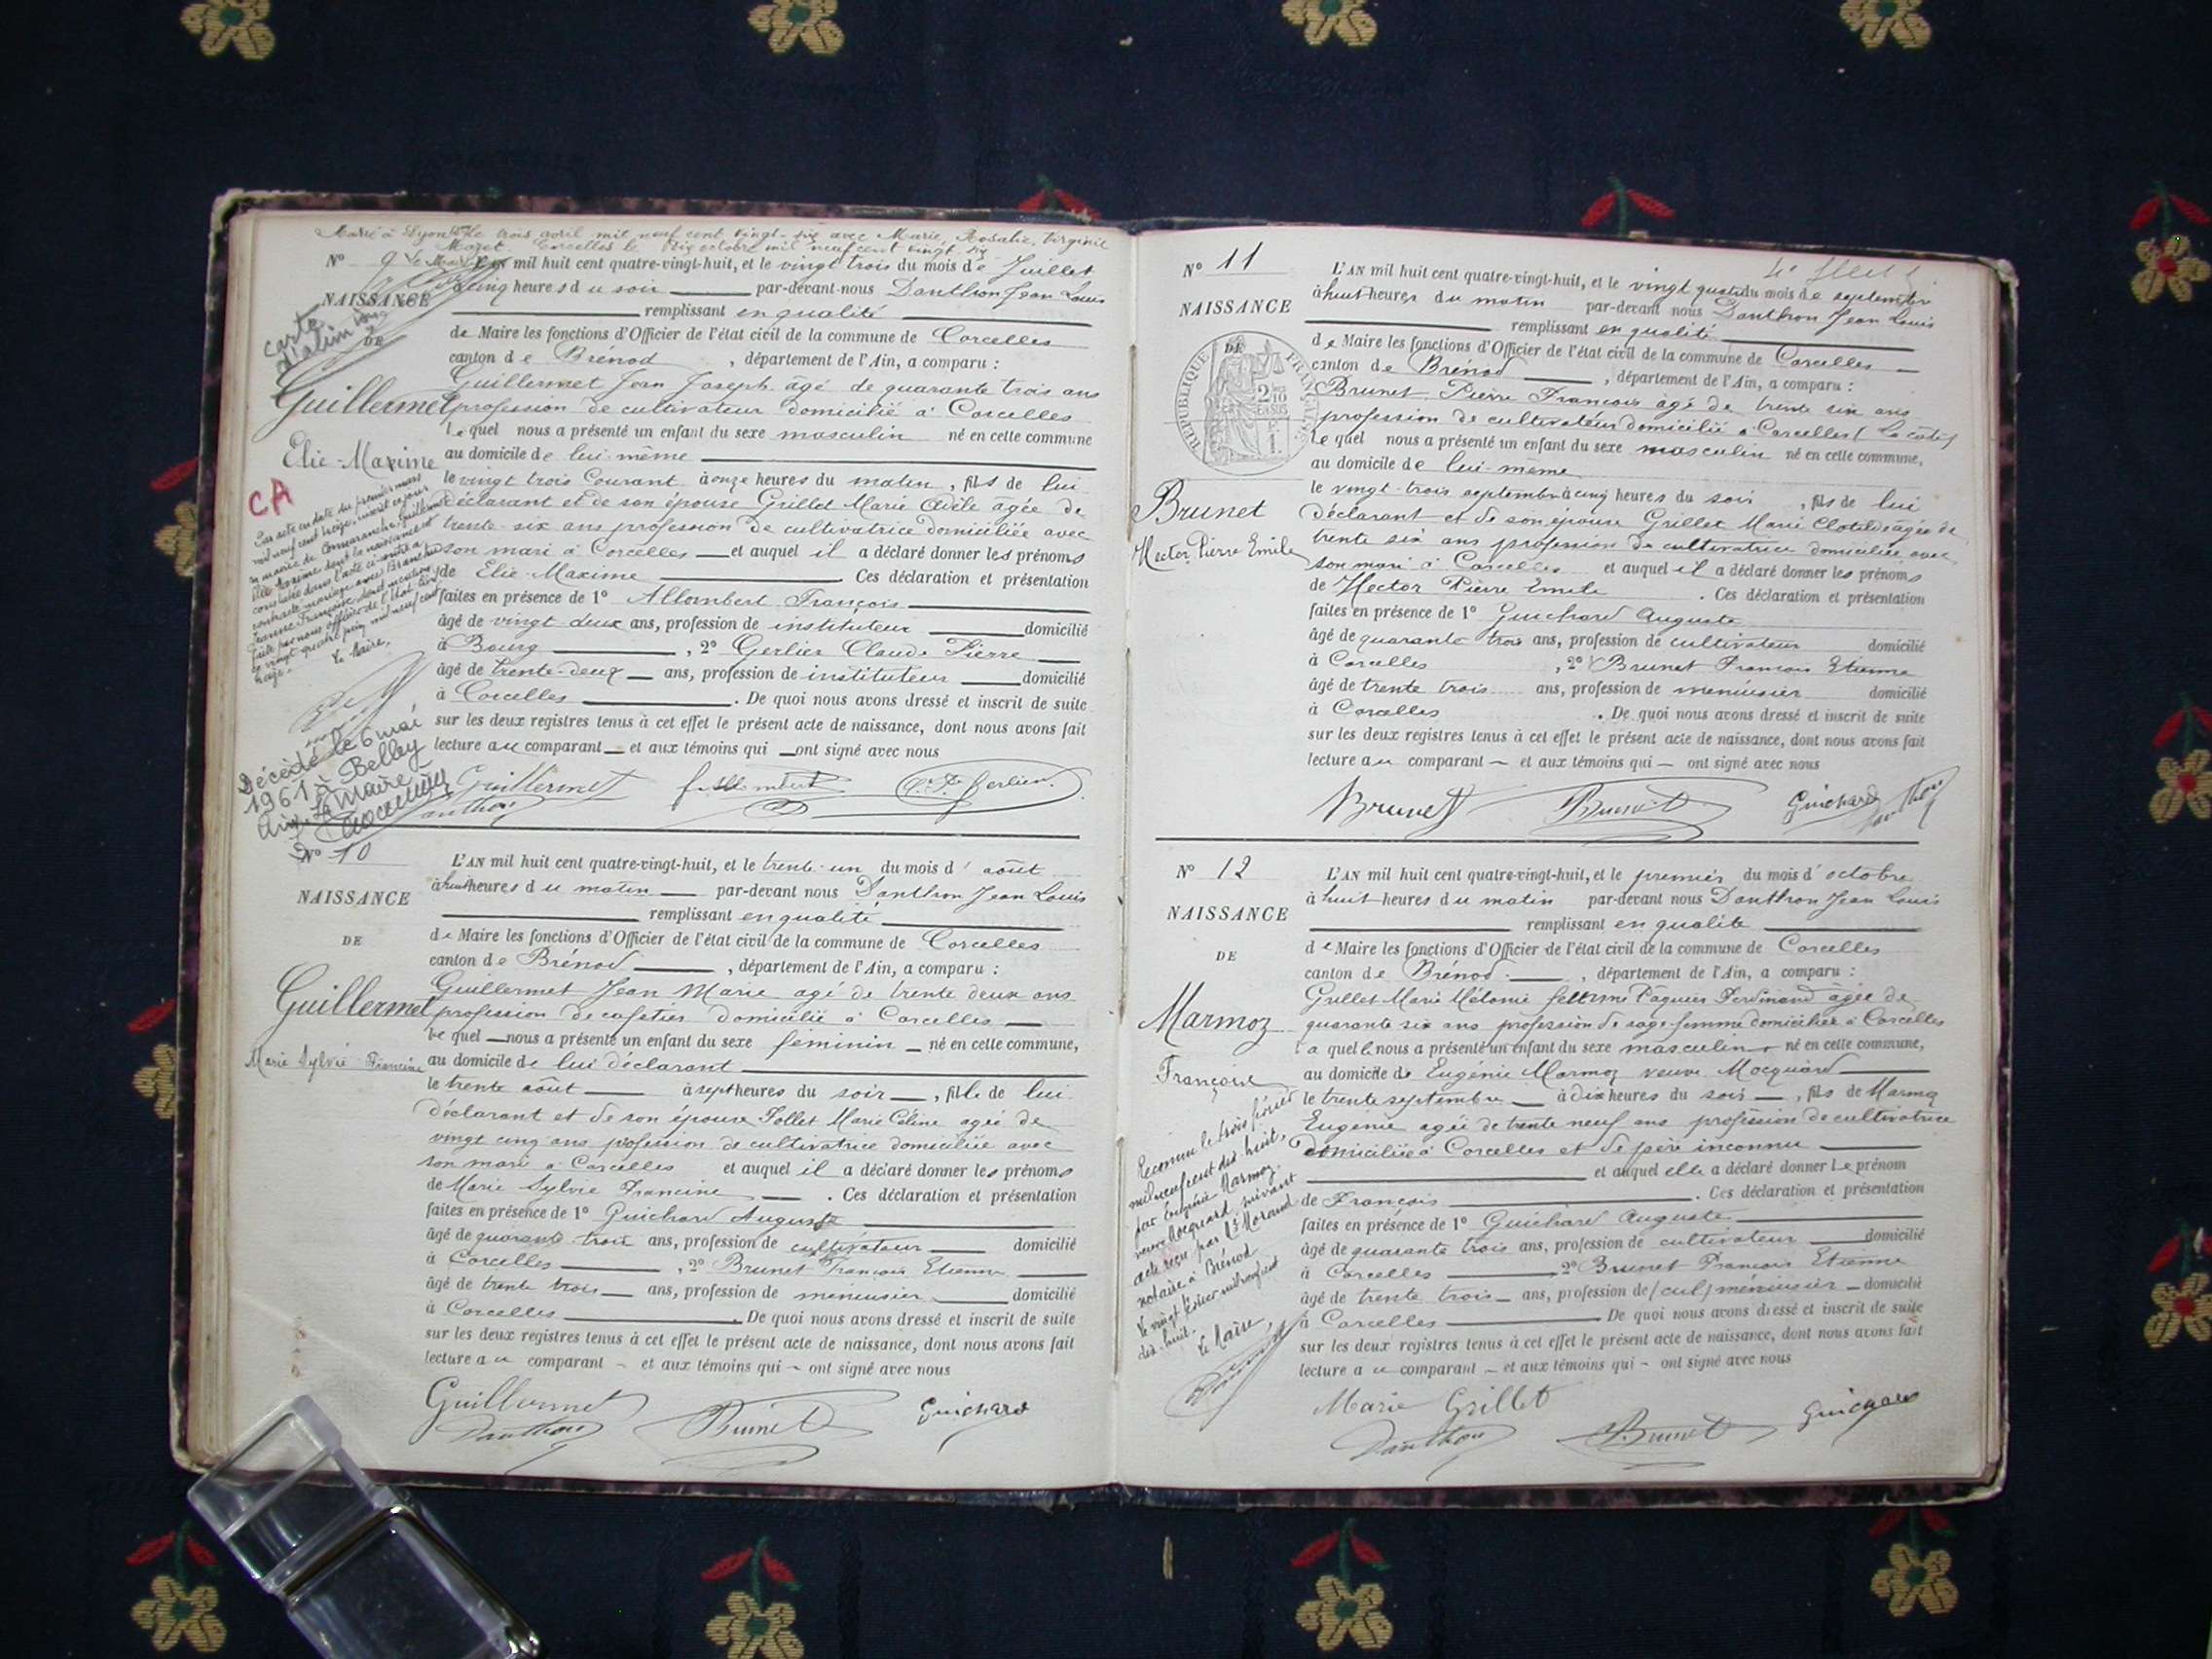 Marié à Lyon le trois avril mil neuf cent vingt-six avec Marie, Rosalie, Virginie
Mazet. Corcelles le dix octobre mil neuf cent vingt six
N° 9
L'AN mil huit cent quatre-vingt-huit, et le vingt trois du mois de Juillet
NAISSANCE
à cinq heures du soir par-devant nous Danthon Jean Louis
remplissant en qualité
carte
d'alim
DE
de Maire les fonctions d'Officier de l'état civil de la commune de Corcelles
canton de Brénod, département de l'Ain, a comparu :
Guillermet Jean Joseph âgé de quarante trois ans
Guillermet
profession de cultivateur domicilié à Corcelles
Le quel nous a présenté un enfant du sexe masculin né en cette commune
Elie-Maxime
au domicile de lui-même
le vingt trois Courant à onze heures du matin, fils de lui
CA
déclarant et de son épouse Grillet Marie Adèle âgée de
trente six ans profession de cultivatrice domiciliée avec
son mari à Corcelles et auquel il a déclaré donner les prénoms
de Elie-Maxime Ces déclaration et présentation
faites en présence de 1° Allombert François
âgé de vingt deux ans, profession de instituteur domicilié
à Bourg, 2° Gerlier Claude Pierre
âgé de trente-deux ans, profession de instituteur domicilié
à Corcelles. De quoi nous avons dressé et inscrit de suite
sur les deux registres tenus à cet effet le présent acte de naissance, dont nous avons fait
lecture au comparant et aux témoins qui ont signé avec nous
Par acte en date du premier mars
mil neuf cent treize, inscrit ce jour
en mairie de Guillermet
Elie Maxime dont la naissance est
constatée dans l'acte ci-contre a
contracté mariage avec
Jeanne Françoise, dont mention
faite par nous officier de l'état civil
ce vingt quatre juin mil neuf cent
treize.
Le Maire,
Décédé le 6 mai
1961 à Belley
Ain. Le Maire
Guillermet f. Allombert C. P. Gerlier
Danthon
N° 10
L'AN mil huit cent quatre-vingt-huit, et le trente-un du mois d' août
à huit heures du matin par-devant nous Danthon Jean Louis
NAISSANCE
remplissant en qualité
DE
de Maire les fonctions d'Officier de l'état civil de la commune de Corcelles
canton de Brénod, département de l'Ain, a comparu :
Guillermet Jean Marie agé de trente deux ans
Guillermet
profession de cafetier domicilié à Corcelles
Le quel nous a présenté un enfant du sexe féminin né en cette commune,
Marie Sylvie Francine
au domicile de lui déclarant
le trente août à sept heures du soir, fille de lui
déclarant et de son épouse Follet Marie Céline agée de
vingt cinq ans profession de cultivatrice domiciliée avec
son mari à Corcelles et auquel il a déclaré donner les prénoms
de Marie Sylvie Francine. Ces déclaration et présentation
faites en présence de 1° Guichard Auguste
âgé de quarante trois ans, profession de cultivateur domicilié
à Corcelles, 2° Brunet François Etienne
âgé de trente trois ans, profession de menuisier domicilié
à Corcelles. De quoi nous avons dressé et inscrit de suite
sur les deux registres tenus à cet effet le présent acte de naissance, dont nous avons fait
lecture au comparant et aux témoins qui ont signé avec nous
Guillermet
Danthon Brunet Guichard
N° 11
L'AN mil huit cent quatre-vingt-huit, et le vingt quatre du mois de septembre
NAISSANCE
à huit heures du matin par-devant nous Danthon Jean Louis
remplissant en qualité
DE
de Maire les fonctions d'Officier de l'état civil de la commune de Corcelles
canton de Brénod, département de l'Ain, a comparu :
RÉPUBLIQUE FRANÇAISE
2/10 EN SUS
Brunet Pierre François âgé de trente six ans
profession de cultivateur domicilié à Corcelles
Le quel nous a présenté un enfant du sexe masculin né en cette commune,
au domicile de lui-même
le vingt-trois septembre à cinq heures du soir, fils de lui
Brunet
déclarant et de son épouse Grillet Marie Clotilde agée de
Hector Pierre Emile
trente six ans profession de cultivatrice domiciliée avec
son mari à Corcelles et auquel il a déclaré donner les prénoms
de Hector Pierre Emile. Ces déclaration et présentation
faites en présence de 1° Guichard Auguste
âgé de quarante trois ans, profession de cultivateur domicilié
à Corcelles, 2° Brunet François Etienne
âgé de trente trois ans, profession de menuisier domicilié
à Corcelles. De quoi nous avons dressé et inscrit de suite
sur les deux registres tenus à cet effet le présent acte de naissance, dont nous avons fait
lecture au comparant et aux témoins qui ont signé avec nous
Brunet Brunet Guichard Danthon
N° 12
L'AN mil huit cent quatre-vingt-huit, et le premier du mois d' octobre
à huit heures du matin par-devant nous Danthon Jean Louis
NAISSANCE
remplissant en qualité
DE
de Maire les fonctions d'Officier de l'état civil de la commune de Corcelles
canton de Brénod, département de l'Ain, a comparu :
Grillet Marie Mélanie femme Pâquier Ferdinand âgée de
Marmoz
quarante six ans profession de sage-femme domiciliée à Corcelles
La quelle nous a présenté un enfant du sexe masculin né en cette commune,
François
au domicile de Eugénie Marmoz veuve Mocquard
le trente septembre à dix heures du soir, fils de Marmoz
Eugénie agée de trente neuf ans profession de cultivatrice
domiciliée à Corcelles et de père inconnu
et auquel elle a déclaré donner le prénom
de François. Ces déclaration et présentation
faites en présence de 1° Guichard Auguste
âgé de quarante trois ans, profession de cultivateur domicilié
à Corcelles 2° Brunet François Etienne
âgé de trente trois ans, profession de (cul) menuisier domicilié
à Corcelles De quoi nous avons dressé et inscrit de suite
sur les deux registres tenus à cet effet le présent acte de naissance, dont nous avons fait
lecture au comparant et aux témoins qui ont signé avec nous
Reconnu le trois février
mil neuf cent dix huit,
par Eugénie Marmoz
veuve Mocquard, suivant
acte reçu par Me Morand
notaire à Brénod
Le vingt février mil neuf cent
dix-huit.
Le Maire,
Marie Grillet
Danthon Brunet Guichard